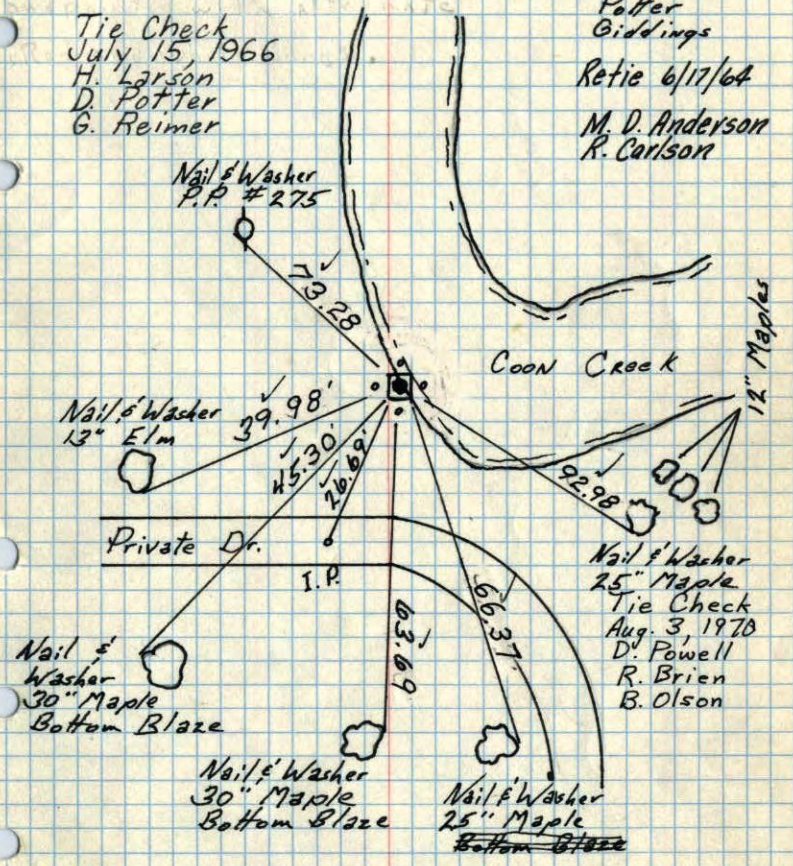 Tie Check
July 15, 1966
H. Larson
D. Potter
G. Reimer
Potter
Giddings
Retie 6/17/64
M. D. Anderson
R. Carlson
Nail & Washer
P.P. # 275
73.28
COON CREEK
12" Maples
Nail & Washer
13" Elm
39.98'
45.30'
26.69'
92.98
Private Dr.
I.P.
63.69
66.37
Nail & Washer
25" Maple
Tie Check
Aug. 3, 1970
D. Powell
R. Brien
B. Olson
Nail &
Washer
30" Maple
Bottom Blaze
Nail & Washer
30" Maple
Bottom Blaze
Nail & Washer
25" Maple
Bottom Blaze